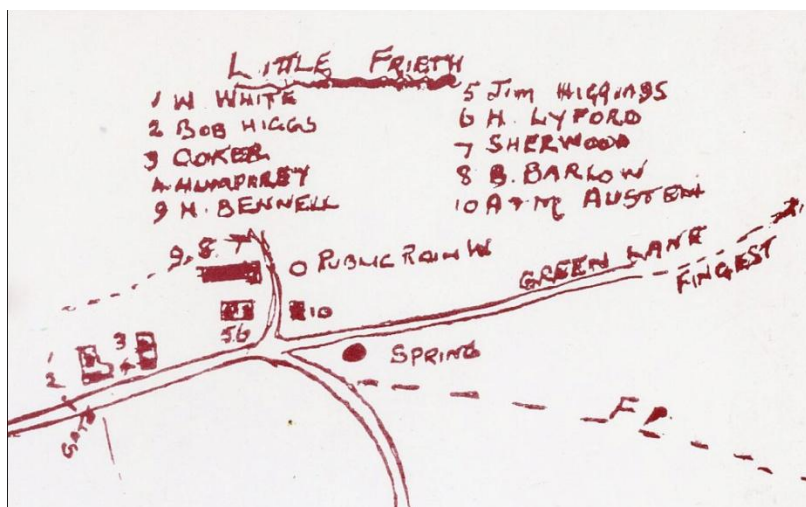 LITTLE FRIETH
1 W. WHITE
2 BOB HIGGS
3 COKER
4 HUMPHREY
9 H. BENNELL
5 Jim HIGGINGS
6 H. LYFORD
7 SHERWOOD
8 B. BARLOW
10 A & M AUSTEN
9, 8. 7
O PUBLIC RAIN W
GREEN LANE
FINGEST
56
10
1
2
3
4
SPRING
GATE
F P.